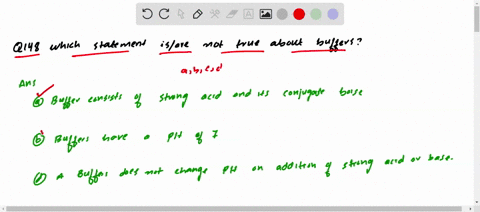 Q148 which statement is/are not true about buffers?
a,b,c,d
Ans
a Buffer consists of strong acid and its conjugate base
b Buffers have a PH of 7
d A Buffers does not change PH on addition of strong acid or base.